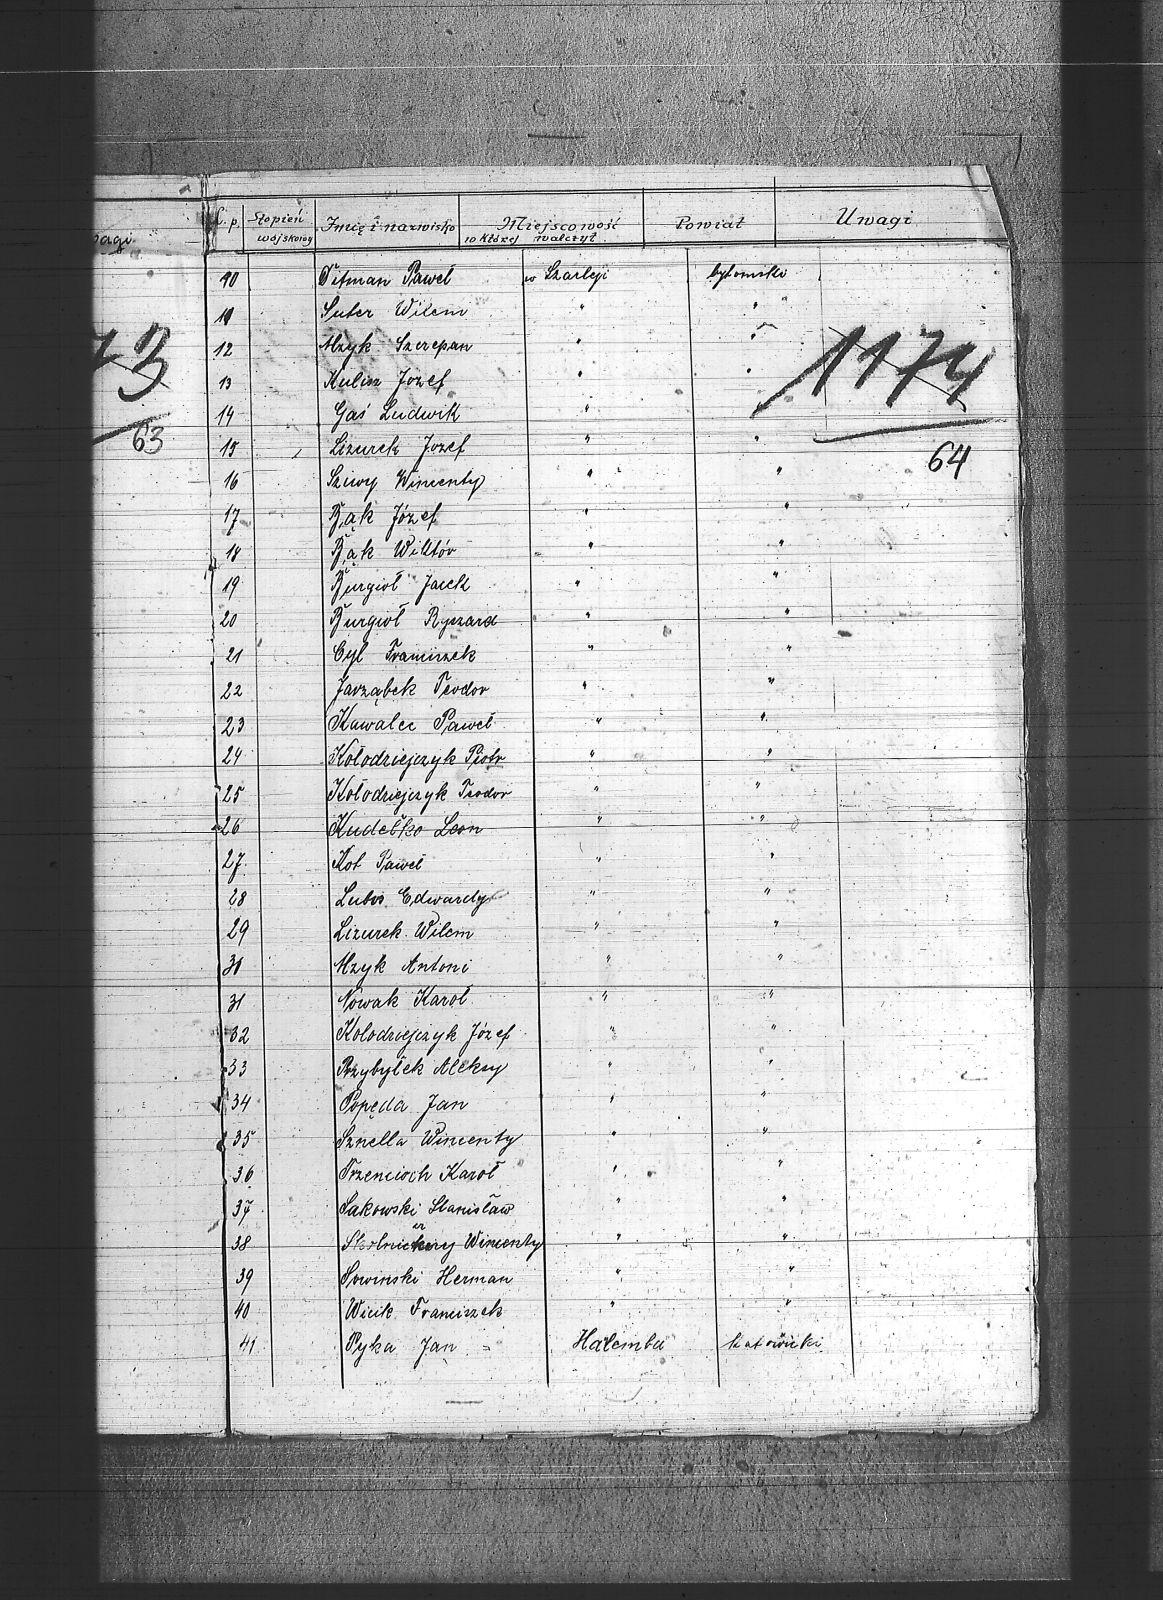 L. p. Stopień wojskowy Imię i nazwisko Miejscowość w której walczył Powiat Uwagi
1174
64
63
10 Pitman Paweł w Szarleji bytomski
11 Suter Wilem " "
12 Mzyk Szczepan " "
13 Kulisz Józef " "
14 Gaś Ludwik " "
15 Lizurek Jozef " "
16 Wincenty " "
17 Bąk Józef " "
18 Bąk Wiktór " "
19 Burgioł Jacek " "
20 Burgioł Ryszard " "
21 Cyl Franciszek " "
22 Jarząbek Teodor " "
23 Kawalec Paweł " "
24 Kołodziejczyk Piotr " "
25 Kołodziejczyk Teodor " "
26 Kudełko Leon " "
27 Kot Paweł " "
28 Lubos Edwardy " "
29 Lizurek Wilem " "
30 Mzyk Antoni " "
31 Nowak Karol " "
32 Kołodziejczyk Józef " "
33 Przybyłek Aleksy " "
34 Popęda Jan " "
35 Sznella Wincenty " "
36 Trzencioch Karol " "
37 Sakowski Stanisław " "
38 Wincenty " "
39 Sowinski Herman " "
40 Wicik Franciszek " "
41 Pyka Jan Halemba katowicki